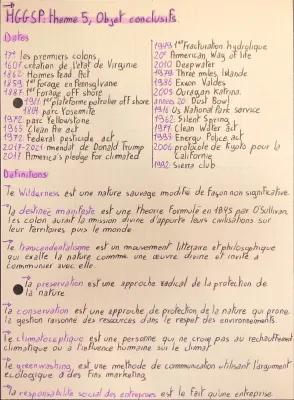 HGGSP: theme 5, Objet conclusifs.
Dates
17e les premiers colons
1607 création de l'état de Virginie
1862 Homestead Act
1859 1er forage en Pensylvanie
1887 1er forage off shore
1911 1er plateforme petrolier off shore
1864 parc Yosemite
1972 parc Yellowstone
1955 Clean Air act
1972 Federal pesticide act
2017-2021 mandat de Donald Trump
2017 America's pledge for climated
1949 1er Fracturation hydrolique
20e American Way of life
2010 Deepwater
1979 Three miles Islande
1989 Exxon Valdes
2005 Ouragan Katrina.
années 20 Dust Bowl
1916 Us National Park service
1962 Silent Spring
1977 Clean Water act
1993 Energy Police act
2006 protocole de Kyoto pour la
Californie
1892 Sierra club
Definitions
le Wilderness est une nature sauvage modifié de façon non significative.
la destinée manifeste est une theorie formulé en 1845 par O'Sullivan,
les colon aurait la mission divine d'apporté leurs civilisations sur
leur territoires puis le monde
le trancendantalisme est un mouvement littéraire et philosophique
qui exalte la nature comme une oeuvre divine et invite a
communier avec elle.
la preservation est une approche radical de la protection de
la nature
la conservation est une approche de protection de la nature qui prone
la gestion raisonné des ressources dans le respect des environnements.
le climatoceptique est une personne qui ne croie pas au rechauffement
climatique ou à l'influence humaine sur le climat
le greenwashing est une methode de communication utilisant l'argument
écologique a des fins marketing
la responsabilité social des entreprises est le fait qu'une entreprise